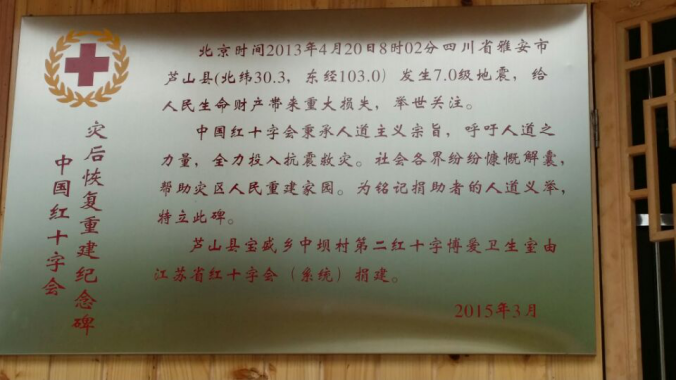 灾后恢复重建纪念碑
中国红十字会
北京时间2013年4月20日8时02分四川省雅安市
芦山县(北纬30.3，东经103.0）发生7.0级地震，给
人民生命财产带来重大损失，举世关注。
中国红十字会秉承人道主义宗旨，呼吁人道之
力量，全力投入抗震救灾。社会各界纷纷慷慨解囊，
帮助灾区人民重建家园。为铭记捐助者的人道义举，
特立此碑。
芦山县宝盛乡中坝村第二红十字博爱卫生室由
江苏省红十字会（系统）捐建。
2015年3月